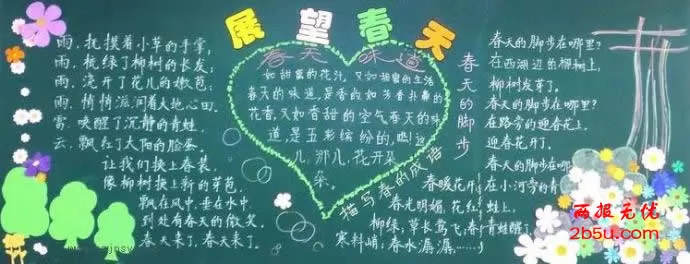 展望春天
雨，抚摸着小草的手掌，
雨，梳绿了柳树的长发；
雨，浇开了花儿的嫩苞；
雨，悄悄滋润着大地心田。
雷，唤醒了沉静的青蛙，
云，飘红了太阳的脸蛋。
让我们换上春装，
像柳树换上新的芽苞，
飘在风中，垂在水中，
到处有春天的微笑，
春天来了，春天来了。
春天 味道
如甜蜜的花汁，又如甜蜜的生活
春天的味道，是香的如芳香扑鼻的
花香，又如香甜的空气春天的味
道，是五彩缤纷的，
儿，那儿，花开朵
朵。
描写春的成语
春暖花开，
春光明媚，花红
柳绿，草长莺飞，春
寒料峭，春水潺潺，……
春天的脚步
春天的脚步在哪里？
在西湖边的柳树上，
柳树发芽了。
春天的脚步在哪里？
在路旁的迎春花上，
迎春花开了。
春天的脚步在哪
在小河旁的青
蛙上，
青蛙醒了。
两报无忧
2b5u.com